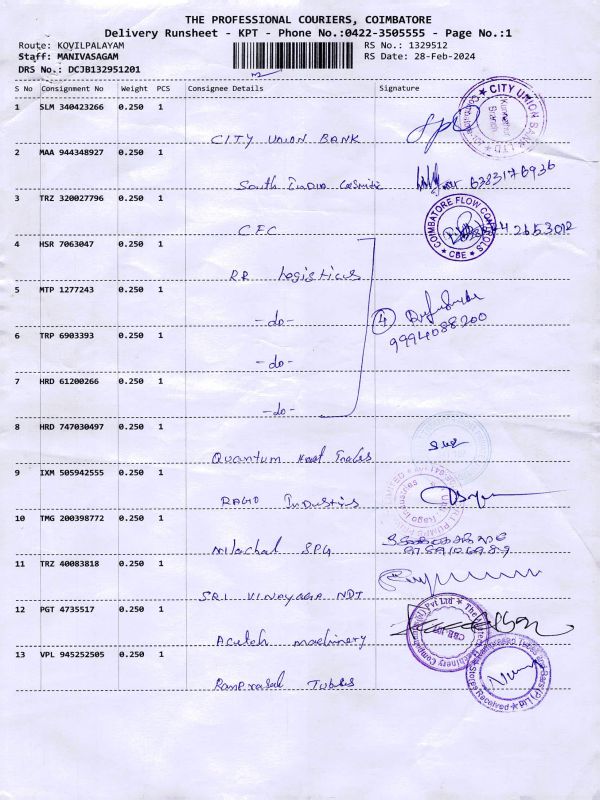 THE PROFESSIONAL COURIERS, COIMBATORE
Delivery Runsheet - KPT - Phone No.:0422-3505555 - Page No.:1
Route: KOVILPALAYAM RS No.: 1329512
Staff: MANIVASAGAM RS Date: 28-Feb-2024
DRS No.: DCJB132951201
S No Consignment No Weight PCS Consignee Details Signature
1 SLM 340423266 0.250 1
CITY UNION BANK
CITY UNION BANK LTD
2 MAA 944348927 0.250 1
South India 6383176936
3 TRZ 320027796 0.250 1
CFC
COIMBATORE FLOW CONTROLS * CBE *
4 HSR 7063047 0.250 1
RR Logisticus
5 MTP 1277243 0.250 1
-do- 4
9994088200
6 TRP 6903393 0.250 1
-do-
7 HRD 61200266 0.250 1
-do-
8 HRD 747030497 0.250 1
Quantum
9 IXM 505942555 0.250 1
RAGO Industries
10 TMG 200398772 0.250 1
Nilachal SPG
11 TRZ 40083818 0.250 1
SRI VINAYAGA NDT
12 PGT 4735517 0.250 1
Acutech machinery
13 VPL 945252505 0.250 1
Ramprasad Tubes